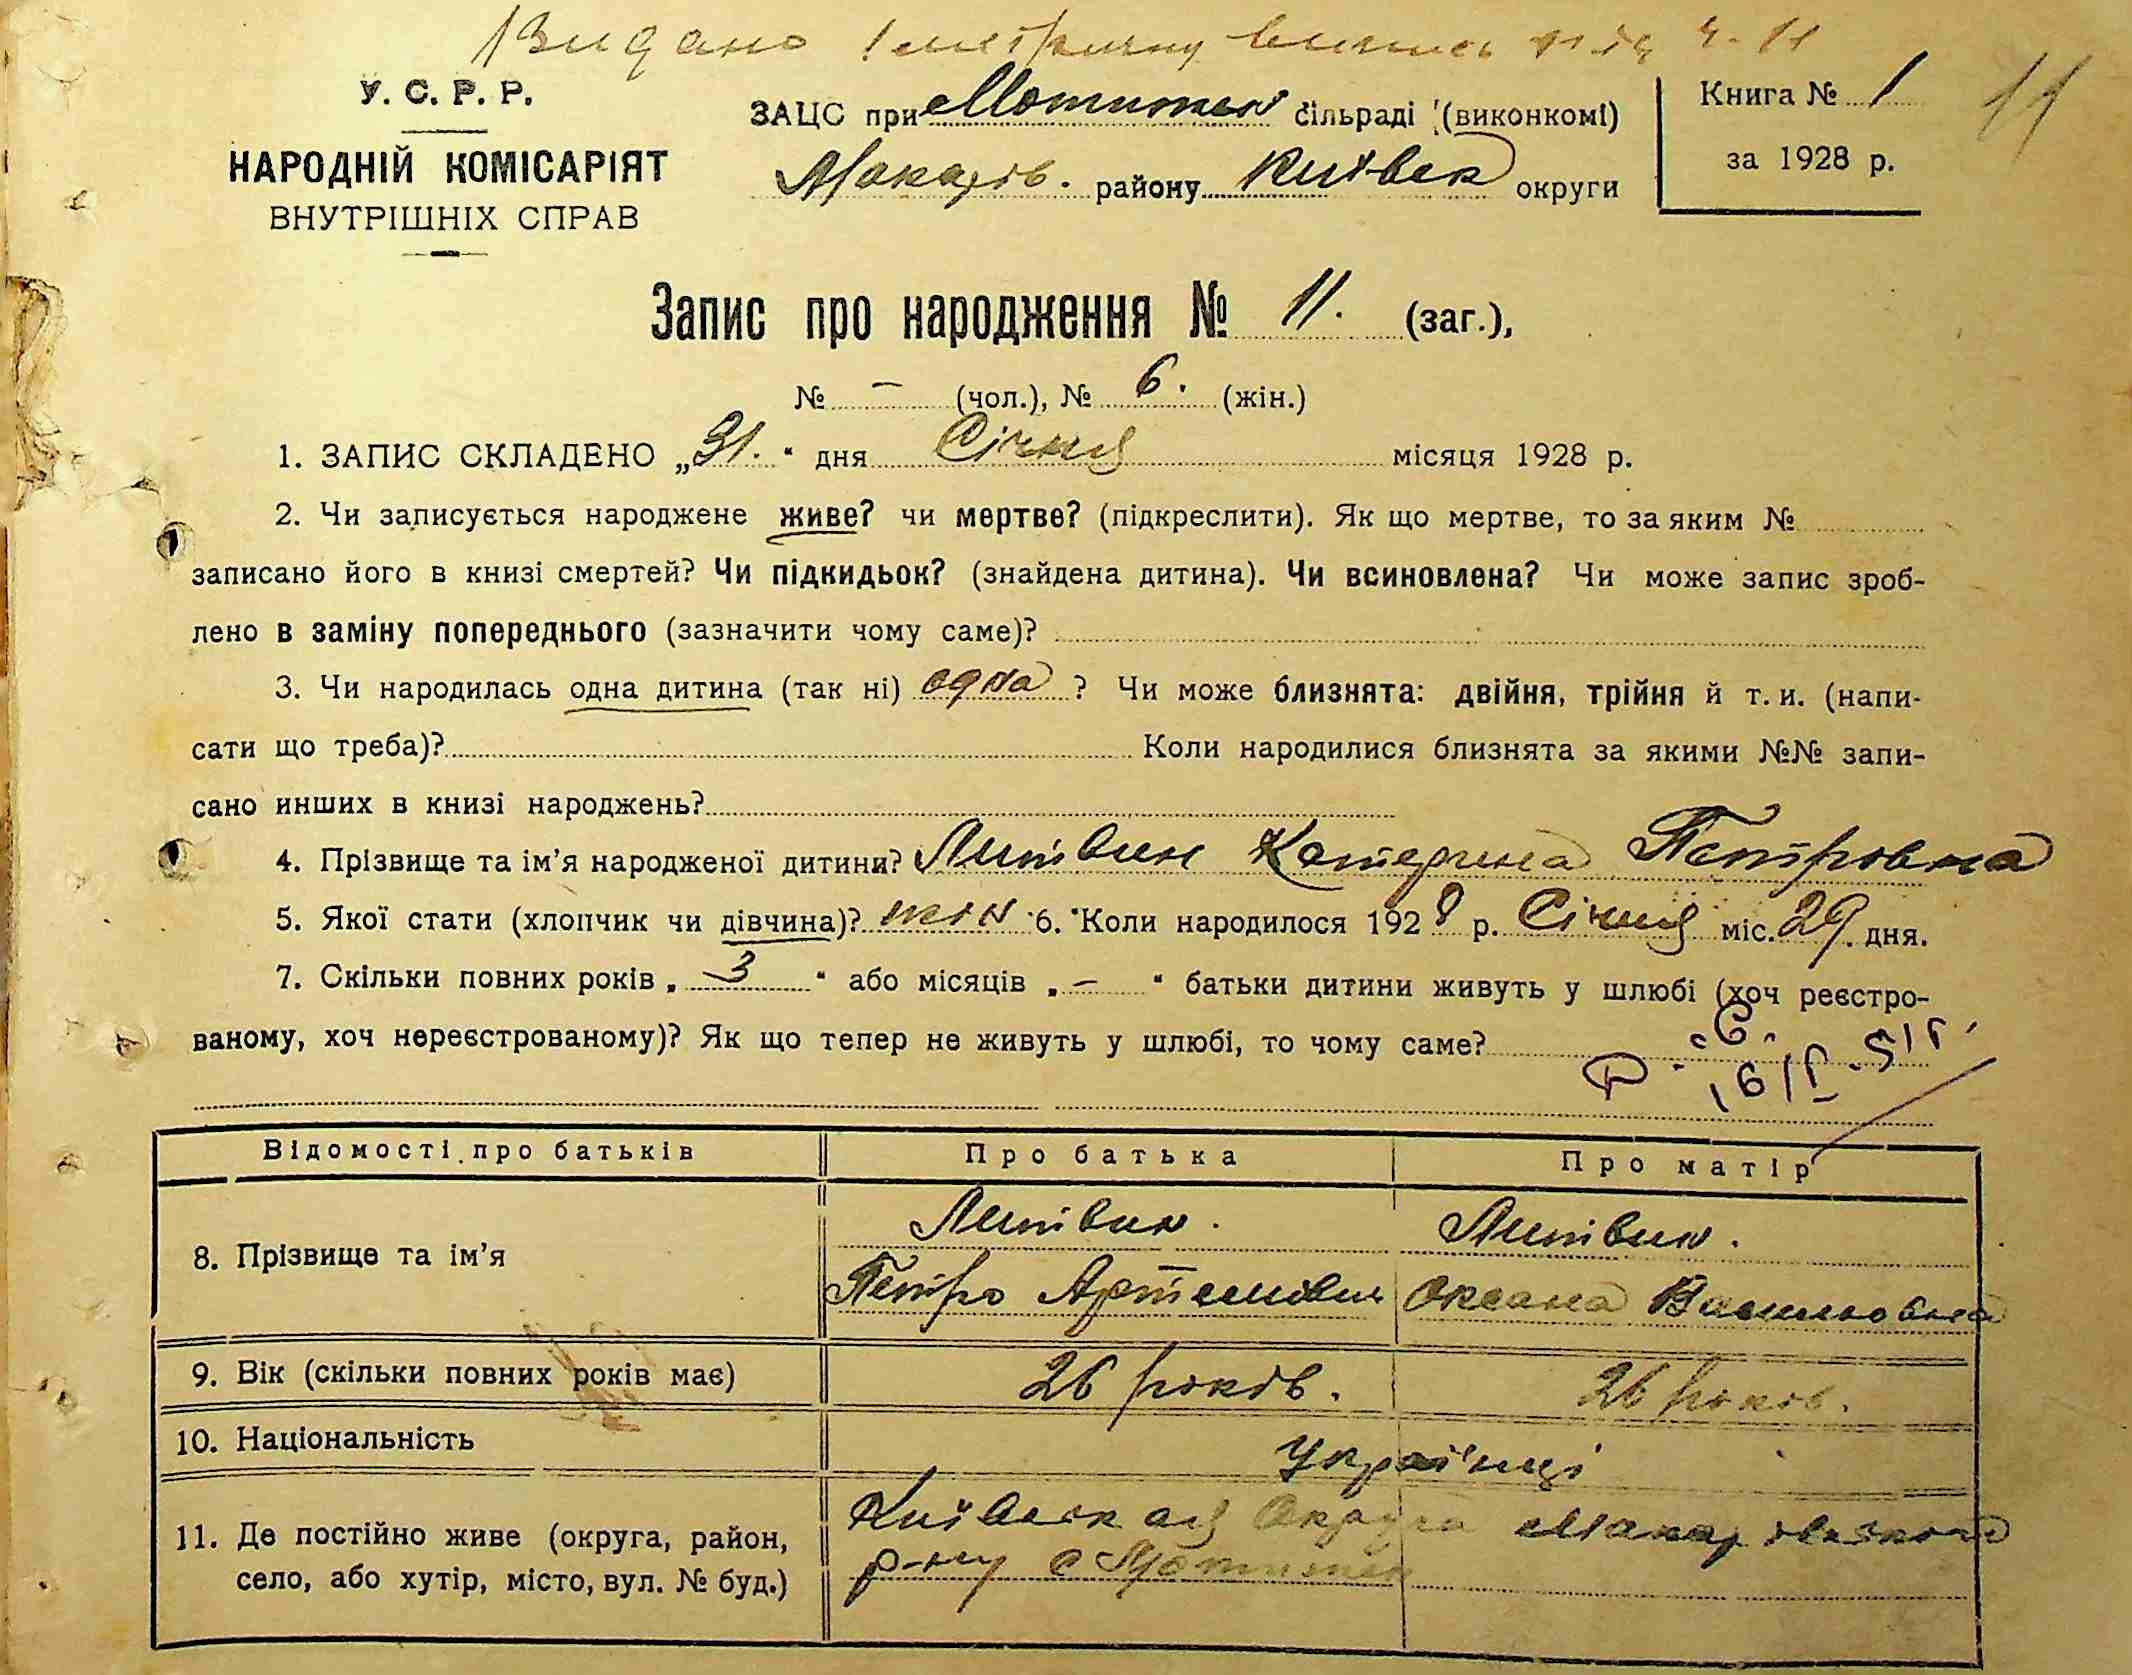 Видано метричну випись
У. С. Р. Р.
НАРОДНІЙ КОМІСАРІЯТ
ВНУТРІШНІХ СПРАВ
ЗАЦС при Мотижен сільраді (виконкомі)
Макарів. району Київськ округи
Книга № 1
за 1928 р.
11
Запис про народження № 11. (заг.),
№ – (чол.), № 6. (жін.)
1. ЗАПИС СКЛАДЕНО „31.“ дня Січня місяця 1928 р.
2. Чи записується народжене живе? чи мертве? (підкреслити). Як що мертве, то за яким №
записано його в книзі смертей? Чи підкидьок? (знайдена дитина). Чи всиновлена? Чи може запис зроб-
лено в заміну попереднього (зазначити чому саме)?
3. Чи народилась одна дитина (так ні) одна ? Чи може близнята: двійня, трійня й т. и. (напи-
сати що треба)? Коли народилися близнята за якими №№ запи-
сано инших в книзі народжень?
4. Прізвище та ім’я народженої дитини? Литвин Катерина Петровна
5. Якої стати (хлопчик чи дівчина)? жін 6. Коли народилося 1928 р. Січня міс. 29. дня.
7. Скільки повних років „ 3 “ або місяців „ – “ батьки дитини живуть у шлюбі (хоч реєстро-
ваному, хоч нереєстрованому)? Як що тепер не живуть у шлюбі, то чому саме?
Відомості про батьків Про батька Про матір
8. Прізвище та ім’я
Литвин. Литвин.
Петро Артемович Оксана Василовна
9. Вік (скільки повних років має) 26 років. 26 років.
10. Національність Українці
11. Де постійно живе (округа, район,
село, або хутір, місто, вул. № буд.)
Київська Округа Макарівського
р-ну с Мотижен